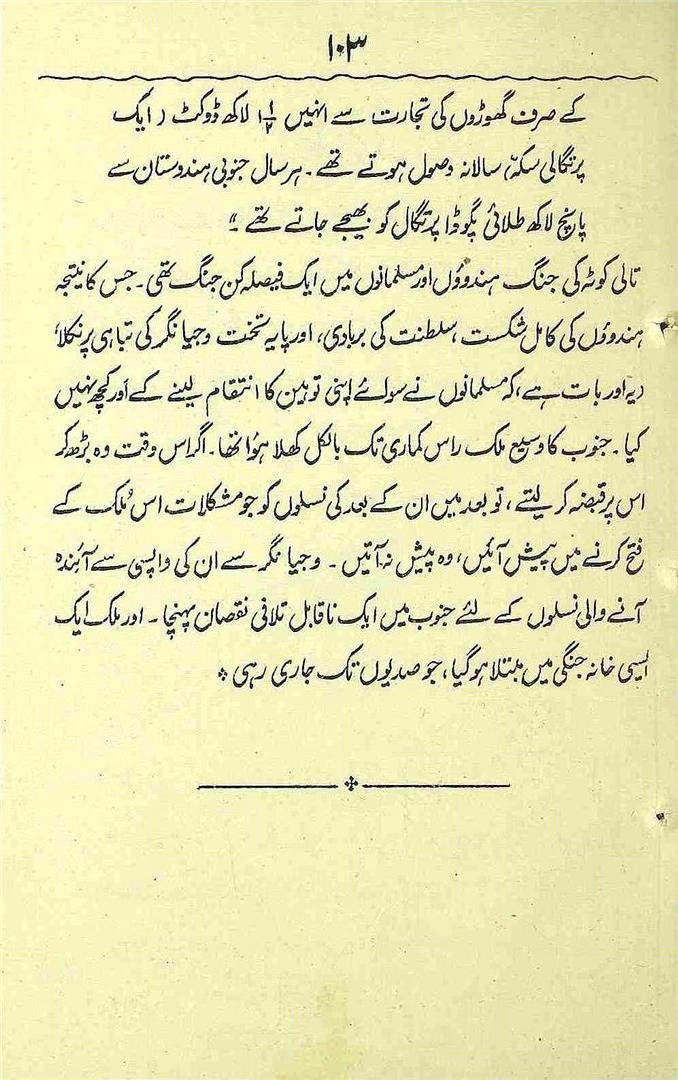 ۱۰۳
کے صرف گھوڑوں کی تجارت سے انہیں ۱ ۱/۲ لاکھ ڈوکٹ (ایک
پرتگالی سکہ) سالانہ وصول ہوتے تھے۔ ہر سال جنوبی ہندوستان سے
پانچ لاکھ طلائی پگوڈا پرتگال کو بھیجے جاتے تھے۔"
تالی کوٹہ کی جنگ ہندوؤں اور مسلمانوں میں ایک فیصلہ کن جنگ تھی۔ جس کا نیتجہ
ہندوؤں کی کامل شکست، سلطنت کی بربادی، اور پایہ تخت وجیانگر کی تباہی پر نکلا،
یہ اور بات ہے، کہ مسلمانوں نے سوائے اپنی توہین کا انتقام لینے کے اَور کچھ نہیں
کیا۔ جنوب کا وسیع ملک راس کماری تک بالکل کھلا ہؤا تھا۔ اگر اس وقت وہ بڑھ کر
اس پر قبضہ کر لیتے، تو بعد میں ان کے بعد کی نسلوں کو جو مشکلات اس مُلک کے
فتح کرنے میں پیش آئیں، وہ پیش نہ آتیں۔ وجیانگر سے ان کی واپسی سے آئندہ
آنے والی نسلوں کے لئے جنوب میں ایک ناقابل تلافی نقصان پہنچا۔ اور ملک ایک
ایسی خانہ جنگی میں مبتلا ہو گیا، جو صدیوں تک جاری رہی ٭